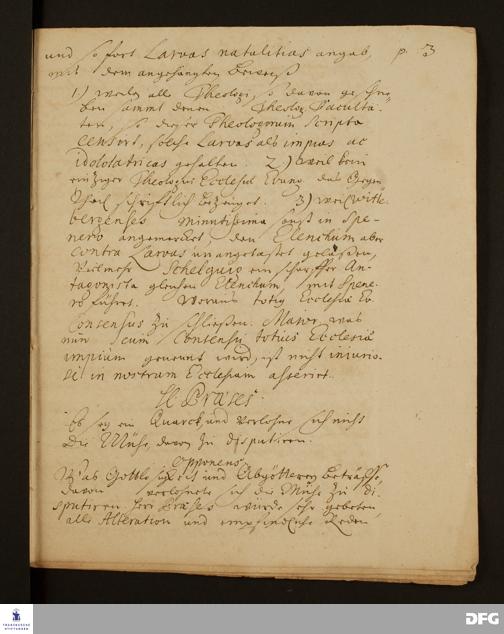 und so fort Larvas natalitias angab, p. 3
mit dem angehängten Beweiß
1) weil alle Theologi, so davon geschrie
ben sammt denen Theolog. Faculta-
ten, so dieser Theologorum scripta
censirt, solche Larvas als impias ac
idololatricas gehalten. 2) Weil kein
einziger Theologus Ecclesiae Evang. das Gegen
Theil schrifftlich bezeuget. 3) weil Witte
bergenses minutissima sonst in Spe-
nero angemercket den Elenchum aber
contra Larvas unangetastet gelaßen,
Vielmehr Schelguig ein scharffer An-
tagonista gleichen Elenchum, mit Spene-
ro führet. Woraus totig Ecclesiae Ev.
Consensus zu schließen. Maior, was
nun cum Consensu totius Ecclesiae
impium genennt wird, ist nicht injurio-
se in nostram Ecclesiam asserirt.
H. Praeses.
Es sey ein Quarck und verlohne sich nicht
die Mühe, davon zu disputiren.
Opponens
Was Gottloses und Abgötterey beträffe,
davon verlohnete sich die Mühe zu di-
sputiren Herr Praeses würde sehr gebeten,
alle Alteration und empfindliche Reden
FRANCKESCHE STIFTUNGEN
DFG